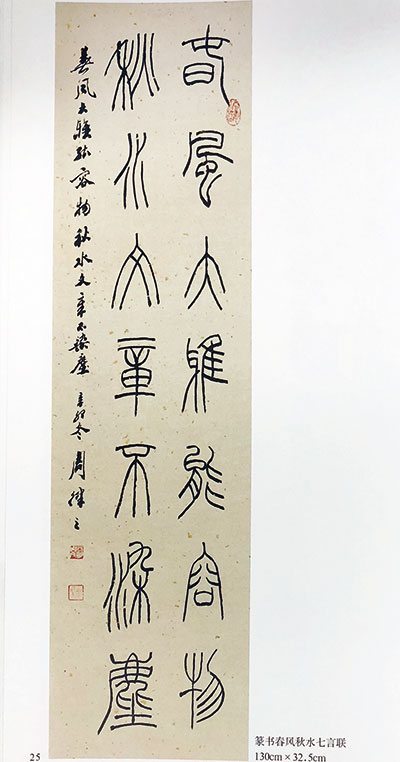 春風大雅能容物
秋水文章不染塵
春风大雅能容物秋水文章不染塵 辛卯冬 周
篆书春风秋水七言联
130cm×32.5cm
25